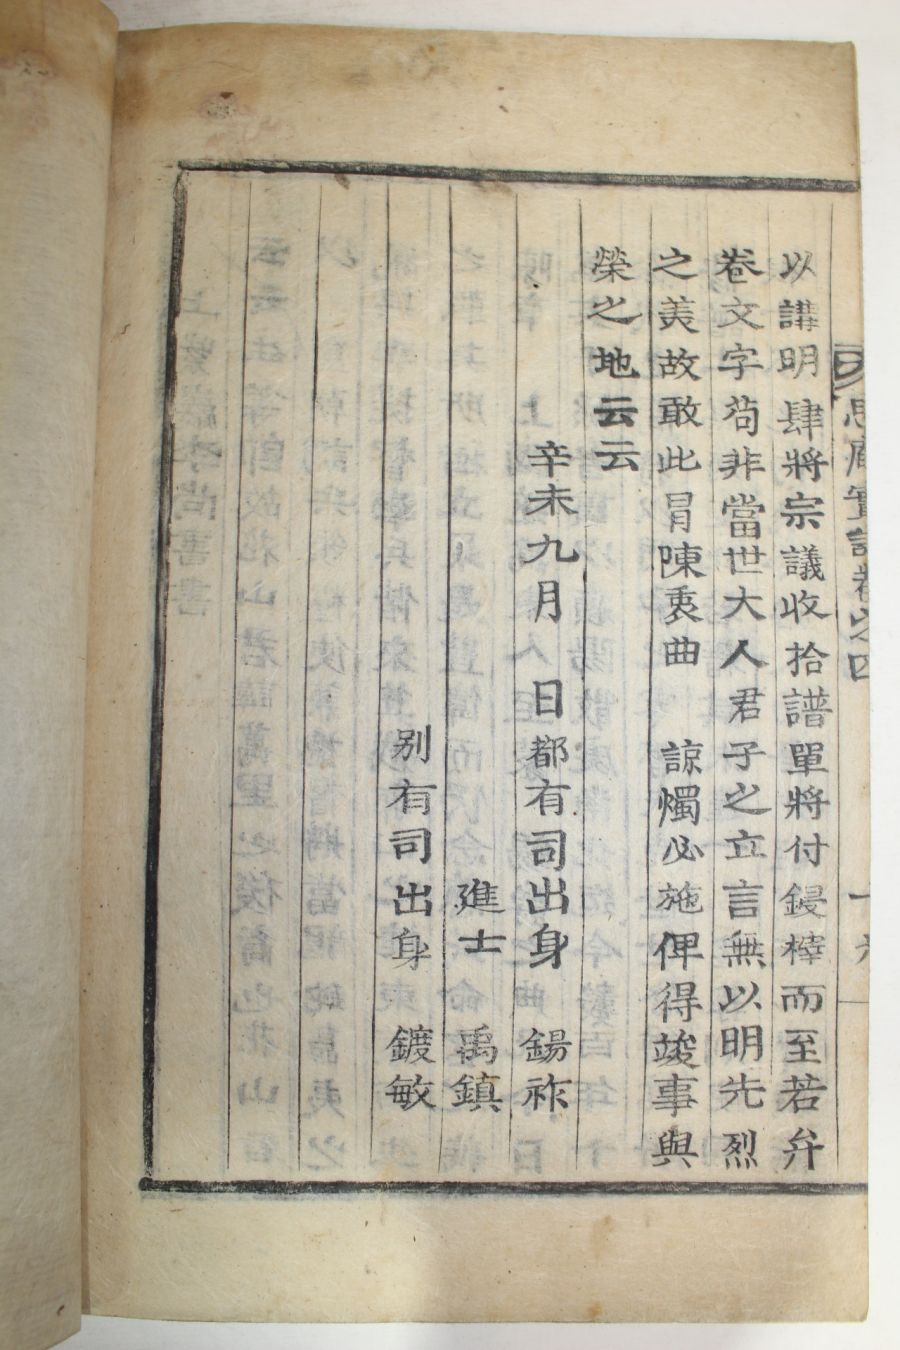 思庵實記卷之四
以講明肆將宗議收拾譜單將付鋟榟而至若弁
卷文字苟非當世大人君子之立言無以明先烈
之美故敢此冒陳衷曲　諒燭必施俾得竣事與
榮之地云云
辛未九月　日都有司出身　鍚祚
進士　禹鎮
别有司出身　鍍敏